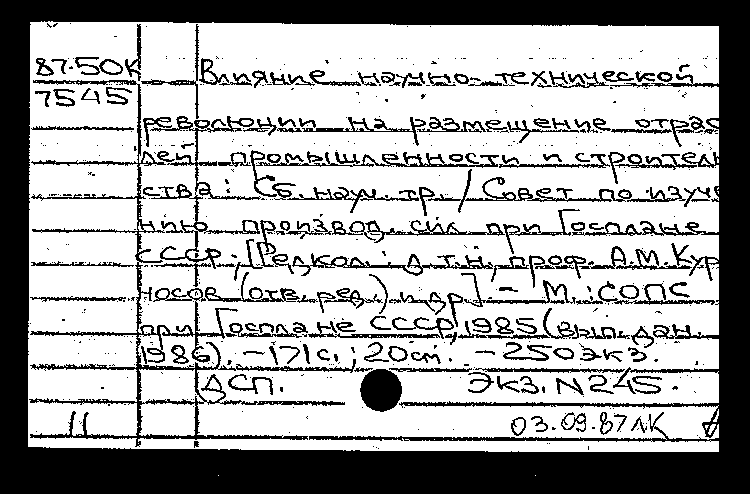 87-50К Влияние научно-технической
7545
революции на размещение отрас
лей промышленности и строитель
ства: Сб. науч. тр. / Совет по изуче
нию производ. сил при Госплане
СССР; [Редкол.: д.т.н., проф. А.М. Кур
носов (отв. ред.) и др] - М.: СОПС
при Госплане СССР, 1985 (вып. дан.
1986). - 171 с.; 20 см. - 250 экз.
ДСП. Экз. N 245.
11 03.09.87 ЛК